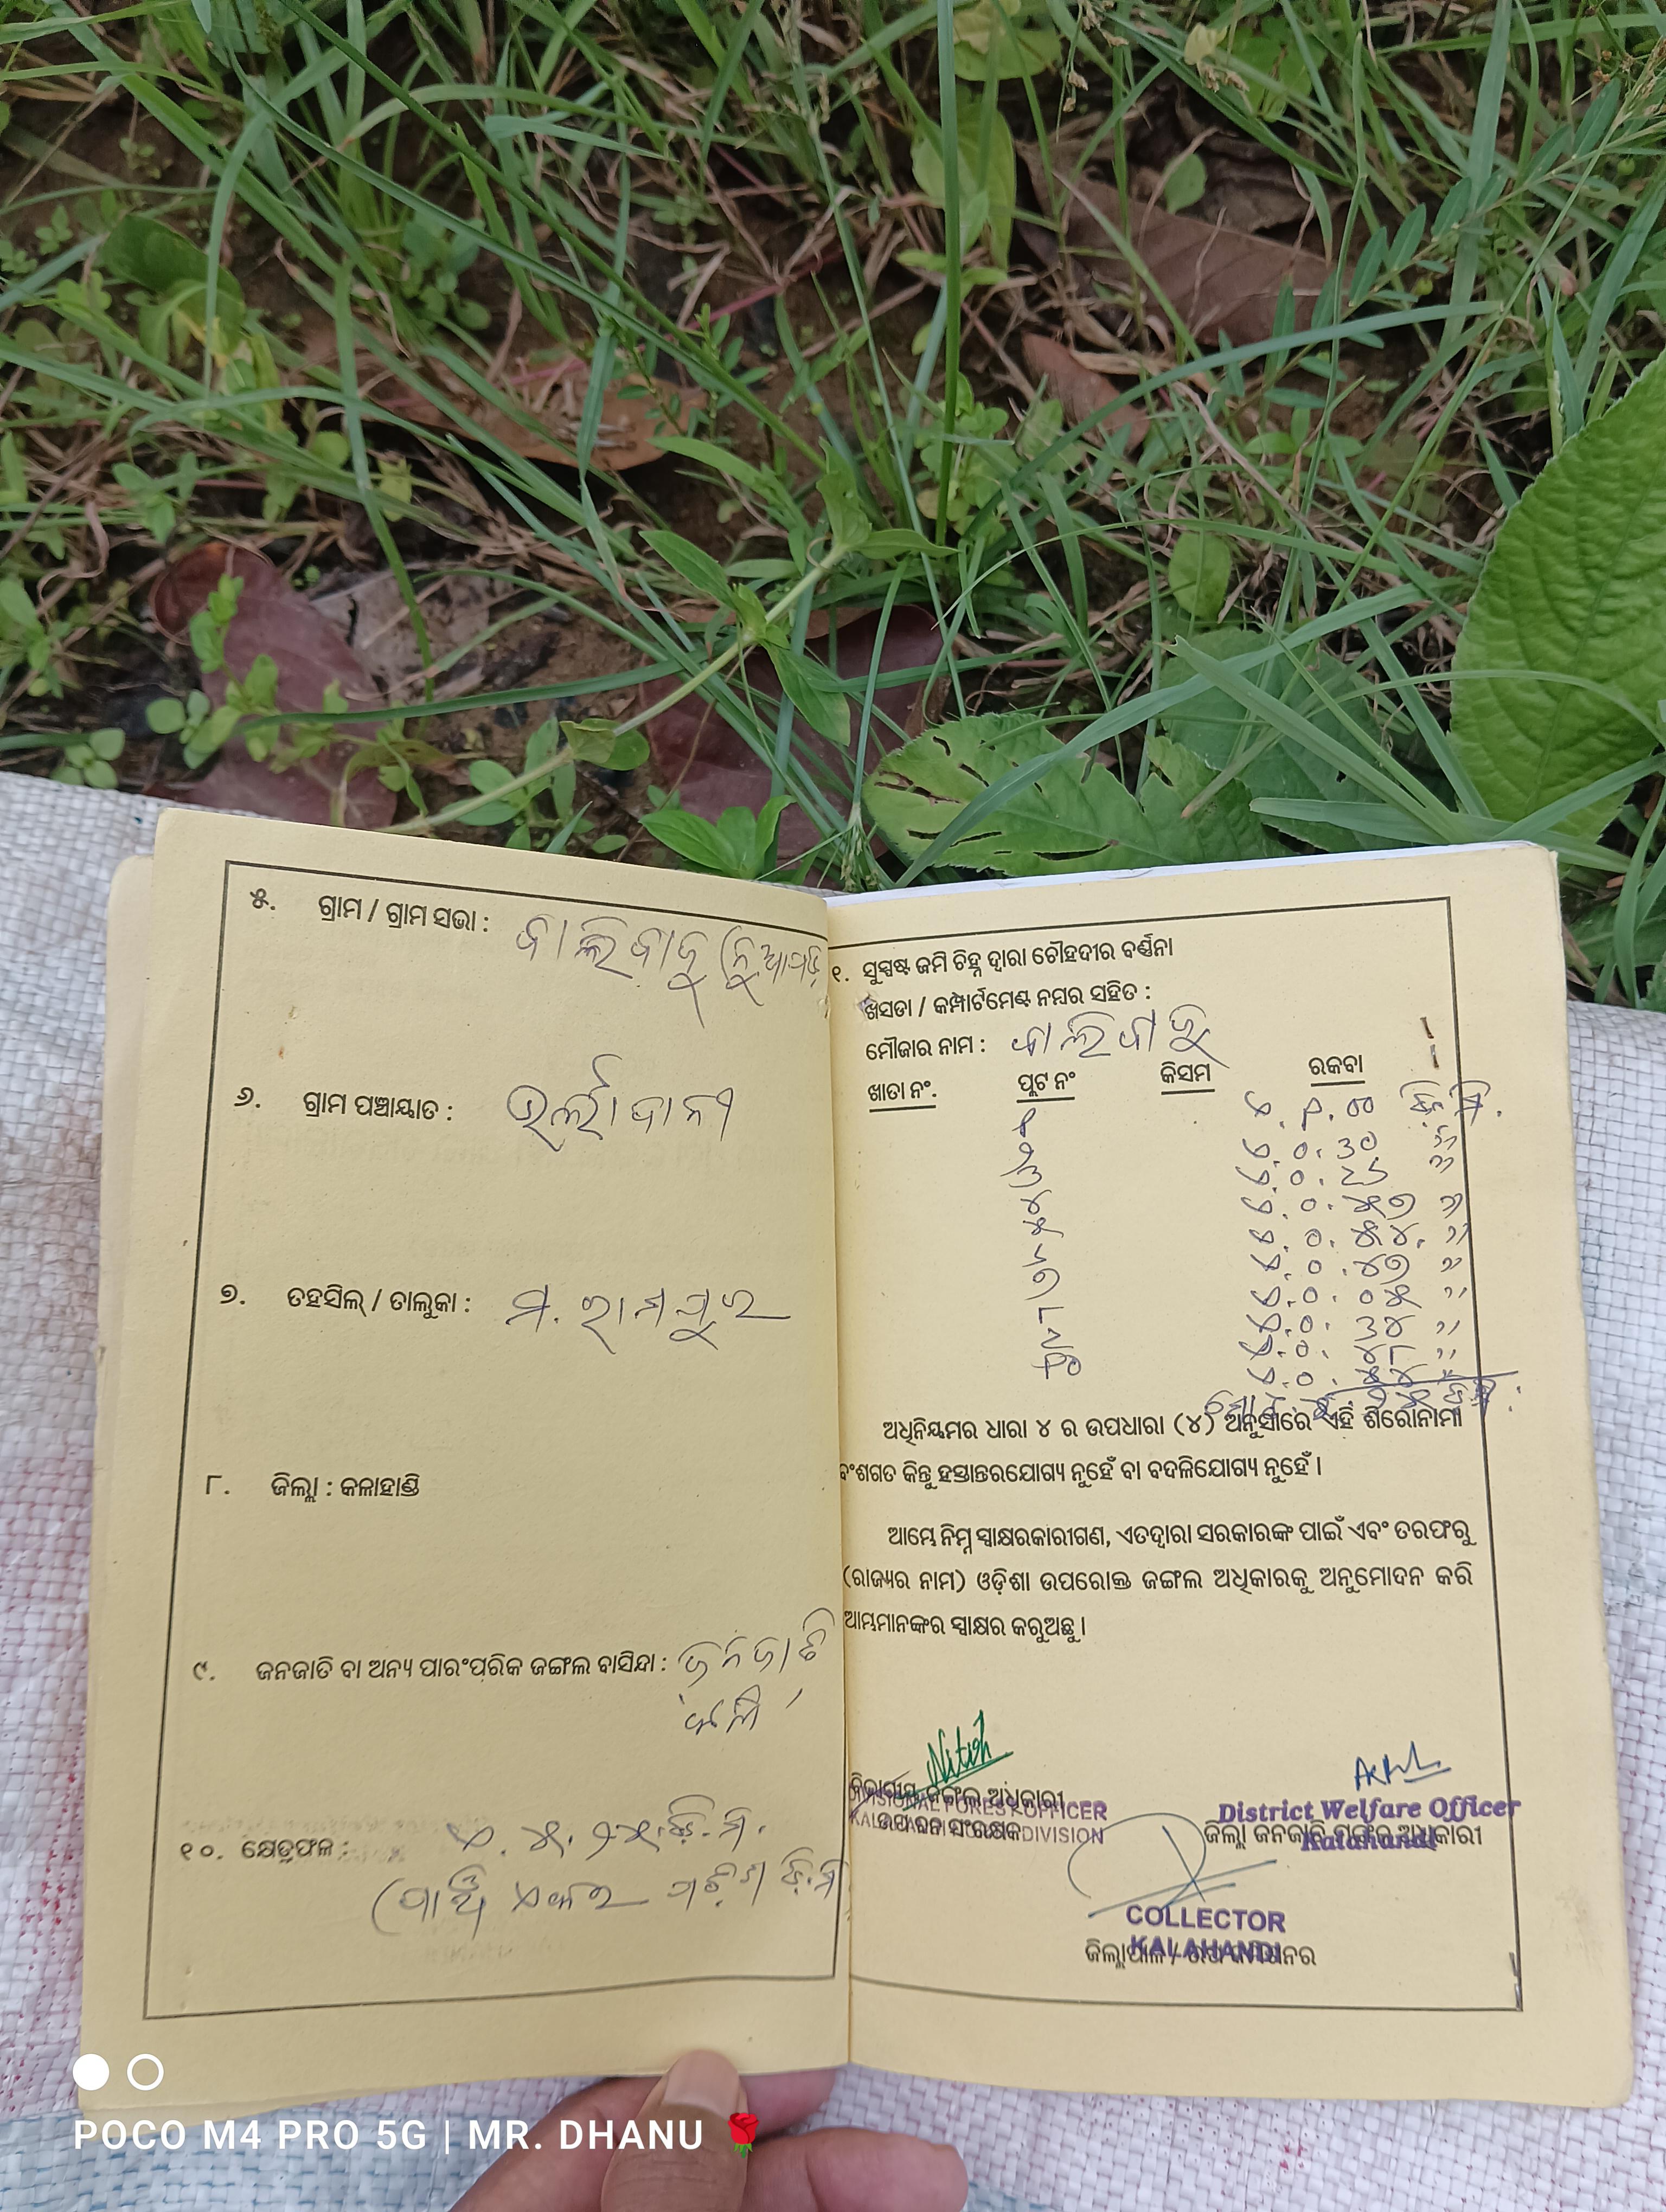 ୫. ଗ୍ରାମ / ଗ୍ରାମ ସଭା : ବାଲିବାଜୁ (ନୁଆଗଡ଼
୬. ଗ୍ରାମ ପଞ୍ଚାୟାତ :
୭. ତହସିଲ୍ / ତାଲୁକା : ମ. ରାମପୁର
୮. ଜିଲ୍ଲା : କଳାହାଣ୍ଡି
୯. ଜନଜାତି ବା ଅନ୍ୟ ପାରଂପରିକ ଜଙ୍ଗଲ ବାସିନ୍ଦା : ଜନଜାତି
୧୦. କ୍ଷେତ୍ରଫଳ : ଏ. ୫. ୨୫ ଡି.ମି.
(ପାଞ୍ଚ ଏକର ପଚିଶ ଡି.ମି
୧. ସୁସ୍ପଷ୍ଟ ଜମି ଚିହ୍ନ ଦ୍ୱାରା ଚୌହଦୀର ବର୍ଣ୍ଣନା
ଖସଡା / କମ୍ପାର୍ଟମେଣ୍ଟ ନମ୍ବର ସହିତ :
ମୌଜାର ନାମ : ବାଲିବାଜୁ
ଖାତା ନଂ. ପ୍ଲଟ ନଂ କିସମ ରକବା
୧ ଏ. ୧. ୦୦ ଡି.ମି.
୨ ଏ. ୦. ୩୦ "
୩ ଏ. ୦. ୨୬ "
୪ ଏ. ୦. ୫୭ "
୫ ଏ. ୦. ୫୪. "
୬ ଏ. ୦. ୪୭ "
୭ ଏ. ୦. ୦୫ "
୮ ଏ. ୦. ୩୪ "
୯ ଏ. ୦. ୪୮ "
୧୦ ଏ. ୦.
ଅଧିନିୟମର ଧାରା ୪ ର ଉପଧାରା (୪) ଅନୁସାରେ ଏହି ଶିରୋନାମା
ବଂଶଗତ କିନ୍ତୁ ହସ୍ତାନ୍ତରଯୋଗ୍ୟ ନୁହେଁ ବା ବଦଳିଯୋଗ୍ୟ ନୁହେଁ ।
ଆମ୍ଭେ ନିମ୍ନ ସ୍ୱାକ୍ଷରକାରୀଗଣ, ଏତଦ୍ୱାରା ସରକାରଙ୍କ ପାଇଁ ଏବଂ ତରଫରୁ
(ରାଜ୍ୟର ନାମ) ଓଡ଼ିଶା ଉପରୋକ୍ତ ଜଙ୍ଗଲ ଅଧିକାରକୁ ଅନୁମୋଦନ କରି
ଆମ୍ଭମାନଙ୍କର ସ୍ୱାକ୍ଷର କରୁଅଛୁ ।
Nitish
ବିଭାଗୀୟ ଜଙ୍ଗଲ ଅଧିକାରୀ
DIVISIONAL FOREST OFFICER
ଉପ ବନ ସଂରକ୍ଷକ
DIVISION
District Welfare Officer
ଜିଲ୍ଲା ଜନଜାତି ମଙ୍ଗଳ ଅଧିକାରୀ
Kalahandi
COLLECTOR
KALAHANDI
ଜିଲ୍ଲାପାଳ / ଉପ କମିଶନର
POCO M4 PRO 5G | MR. DHANU 🌹